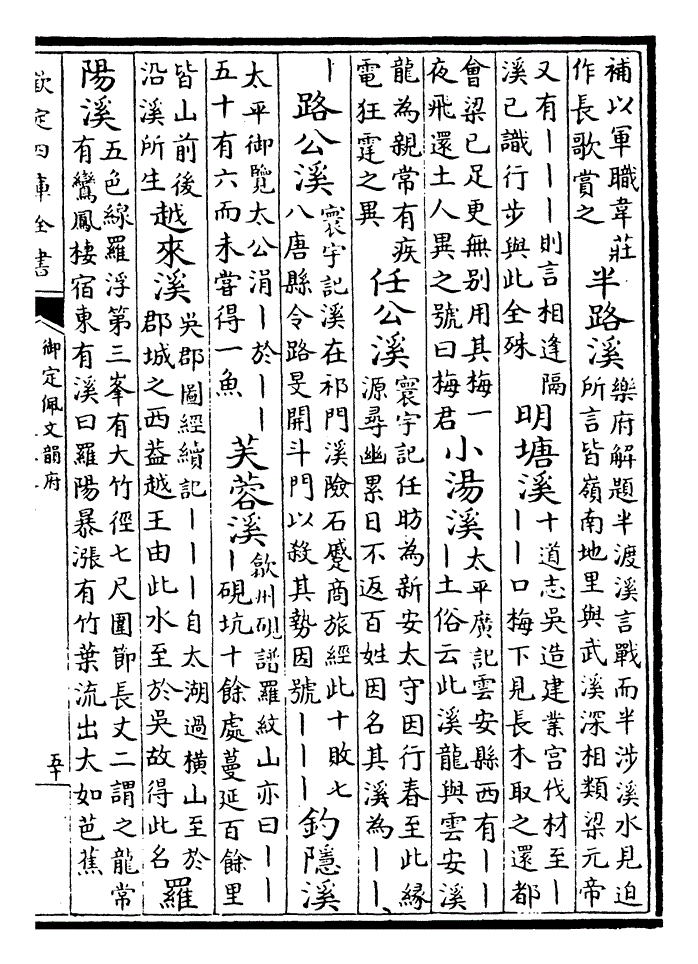 補以軍職韋莊
作長歌賞之
半路溪
樂府解題半渡溪言戰而半涉溪水見迫
所言皆嶺南地里與武溪深相類梁元帝
又有丨丨丨則言相逢隔
溪已識行步與此全殊
明塘溪
十道志吳造建業宫伐材至丨
丨丨口梅下見長木取之還都
會梁已足更無别用其梅一
夜飛還土人異之號曰梅君
小湯溪
太平廣記雲安縣西有丨丨
丨土俗云此溪龍與雲安溪
龍為親常有疾
電狂霆之異
任公溪
寰宇記任昉為新安太守因行春至此縁
源尋幽累日不返百姓因名其溪為丨丨
丨
路公溪
寰宇記溪在祁門溪險石蹙商旅經此十敗七
八唐縣令路旻開斗門以殺其勢因號丨丨丨
釣隱溪
太平御覽太公涓丨於丨丨
五十有六而未嘗得一魚
芙蓉溪
歙州硯譜羅紋山亦曰丨丨
丨硯坑十餘處蔓延百餘里
皆山前後
沿溪所生
越來溪
吳郡圖經續記丨丨丨自太湖過横山至於
郡城之西葢越王由此水至於吳故得此名
羅
陽溪
五色線羅浮第三峯有大竹徑七尺圍節長丈二謂之龍常
有鸞鳳棲宿東有溪曰羅陽暴漲有竹葉流出大如芭蕉
欽定四庫全書
御定佩文韻府
五十